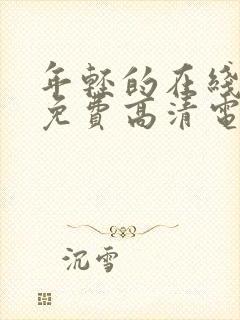 年轻的在线
免费高清电
沉雪